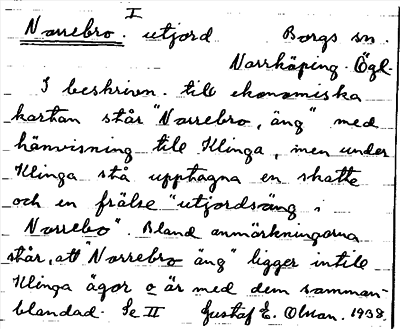 I
Norrebro. utjord Borgs sn.
Norrköping. Ögl.
I beskrivn. till ekonomiska
kartan står "Norrebro, äng" med
hänvisning till Klinga, men under
Klinga stå upptagna en skatte
och en frälse "utjordsäng i
Norrebo". Bland anmärkningarna
står, att "Norrebro äng" ligger intill
Klinga ägor o är med dem samman-
blandad. Se II Gustaf E. Olson. 1938.